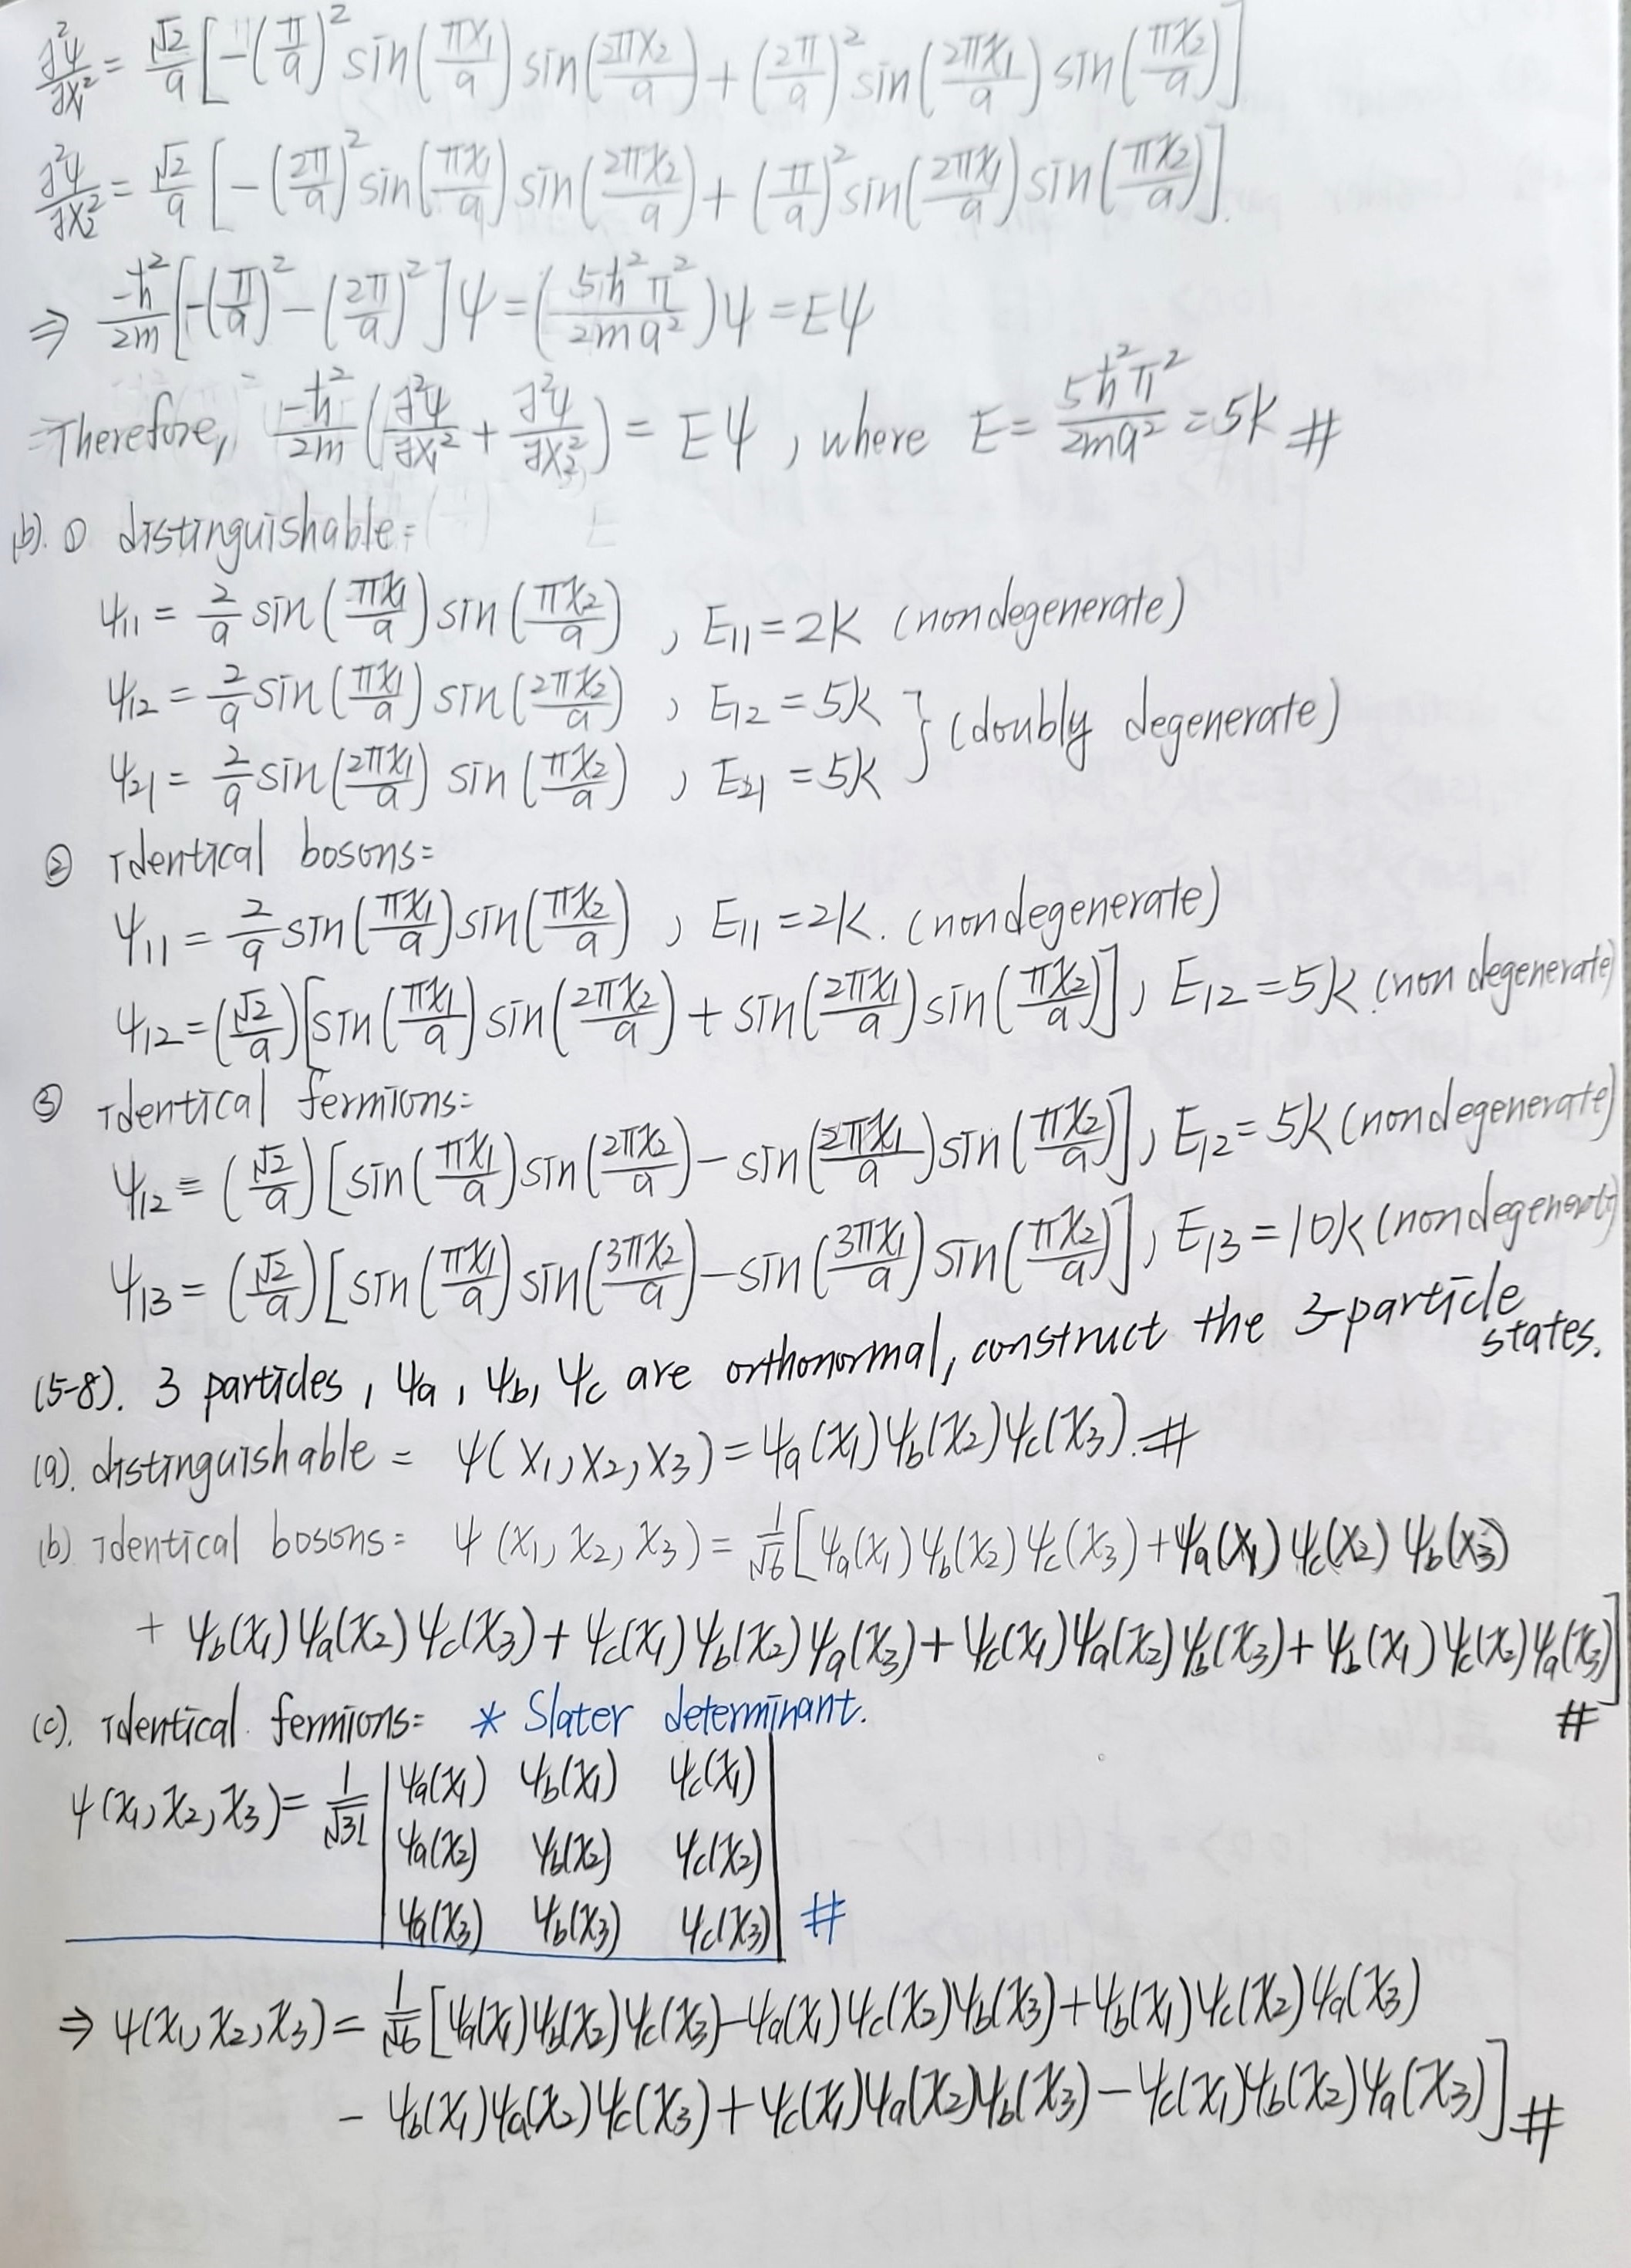 ∂²ψ/∂x₁² = √2/a [-(π/a)² sin(πx₁/a) sin(2πx₂/a) + (2π/a)² sin(2πx₁/a) sin(πx₂/a)]
∂²ψ/∂x₂² = √2/a [-(2π/a)² sin(πx₁/a) sin(2πx₂/a) + (π/a)² sin(2πx₁/a) sin(πx₂/a)].
⇒ -ħ²/2m [-(π/a)² - (2π/a)²] ψ = (5ħ²π²/2ma²) ψ = Eψ
⇒ Therefore, -ħ²/2m (∂²ψ/∂x₁² + ∂²ψ/∂x₂²) = Eψ, where E = 5ħ²π²/2ma² = 5K #
(b). ① distinguishable:
ψ₁₁ = 2/a sin(πx₁/a) sin(πx₂/a), E₁₁ = 2K (nondegenerate)
ψ₁₂ = 2/a sin(πx₁/a) sin(2πx₂/a), E₁₂ = 5K
ψ₂₁ = 2/a sin(2πx₁/a) sin(πx₂/a), E₂₁ = 5K } (doubly degenerate)
② identical bosons:
ψ₁₁ = 2/a sin(πx₁/a) sin(πx₂/a), E₁₁ = 2K. (nondegenerate)
ψ₁₂ = (√2/a) [sin(πx₁/a) sin(2πx₂/a) + sin(2πx₁/a) sin(πx₂/a)], E₁₂ = 5K. (nondegenerate)
③ identical fermions:
ψ₁₂ = (√2/a) [sin(πx₁/a) sin(2πx₂/a) - sin(2πx₁/a) sin(πx₂/a)], E₁₂ = 5K (nondegenerate)
ψ₁₃ = (√2/a) [sin(πx₁/a) sin(3πx₂/a) - sin(3πx₁/a) sin(πx₂/a)], E₁₃ = 10K (nondegenerate)
(5-8). 3 particles, ψa, ψb, ψc are orthonormal, construct the 3-particle states.
(a). distinguishable: ψ(x₁, x₂, x₃) = ψa(x₁)ψb(x₂)ψc(x₃). #
(b) identical bosons: ψ(x₁, x₂, x₃) = 1/√6 [ψa(x₁)ψb(x₂)ψc(x₃) + ψa(x₁)ψc(x₂)ψb(x₃)
+ ψb(x₁)ψa(x₂)ψc(x₃) + ψc(x₁)ψb(x₂)ψa(x₃) + ψc(x₁)ψa(x₂)ψb(x₃) + ψb(x₁)ψc(x₂)ψa(x₃)] #
(c). identical fermions: * Slater determinant.
ψ(x₁, x₂, x₃) = 1/√3! | ψa(x₁) ψb(x₁) ψc(x₁) |
| ψa(x₂) ψb(x₂) ψc(x₂) |
| ψa(x₃) ψb(x₃) ψc(x₃) | #
⇒ ψ(x₁, x₂, x₃) = 1/√6 [ψa(x₁)ψb(x₂)ψc(x₃) - ψa(x₁)ψc(x₂)ψb(x₃) + ψb(x₁)ψc(x₂)ψa(x₃)
- ψb(x₁)ψa(x₂)ψc(x₃) + ψc(x₁)ψa(x₂)ψb(x₃) - ψc(x₁)ψb(x₂)ψa(x₃)] #